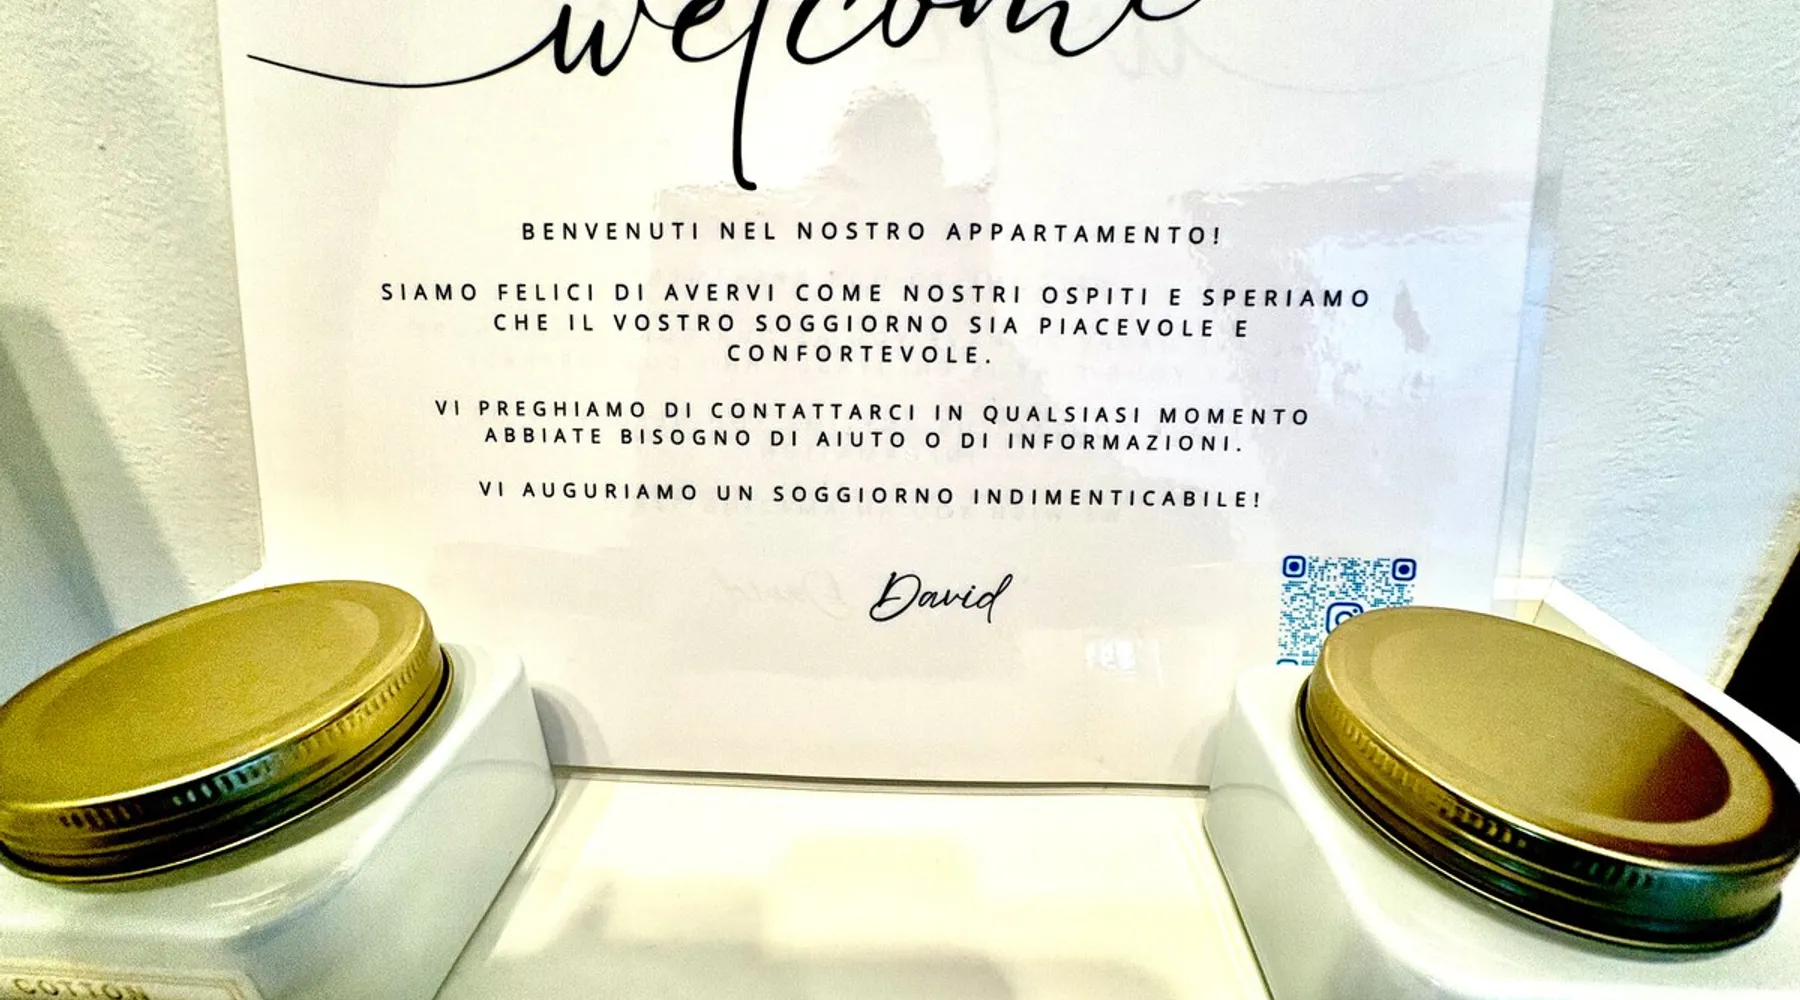 welcome
BENVENUTI NEL NOSTRO APPARTAMENTO!
SIAMO FELICI DI AVERVI COME NOSTRI OSPITI E SPERIAMO
CHE IL VOSTRO SOGGIORNO SIA PIACEVOLE E
CONFORTEVOLE.
VI PREGHIAMO DI CONTATTARCI IN QUALSIASI MOMENTO
ABBIATE BISOGNO DI AIUTO O DI INFORMAZIONI.
VI AUGURIAMO UN SOGGIORNO INDIMENTICABILE!
David
COTTON